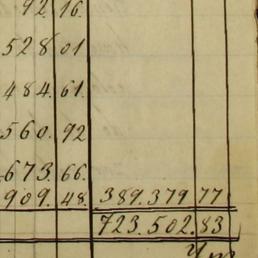 92. 16.
528 01
484. 61.
560. 92
673. 66.
909. 48. 389.379 77
723.502. 83